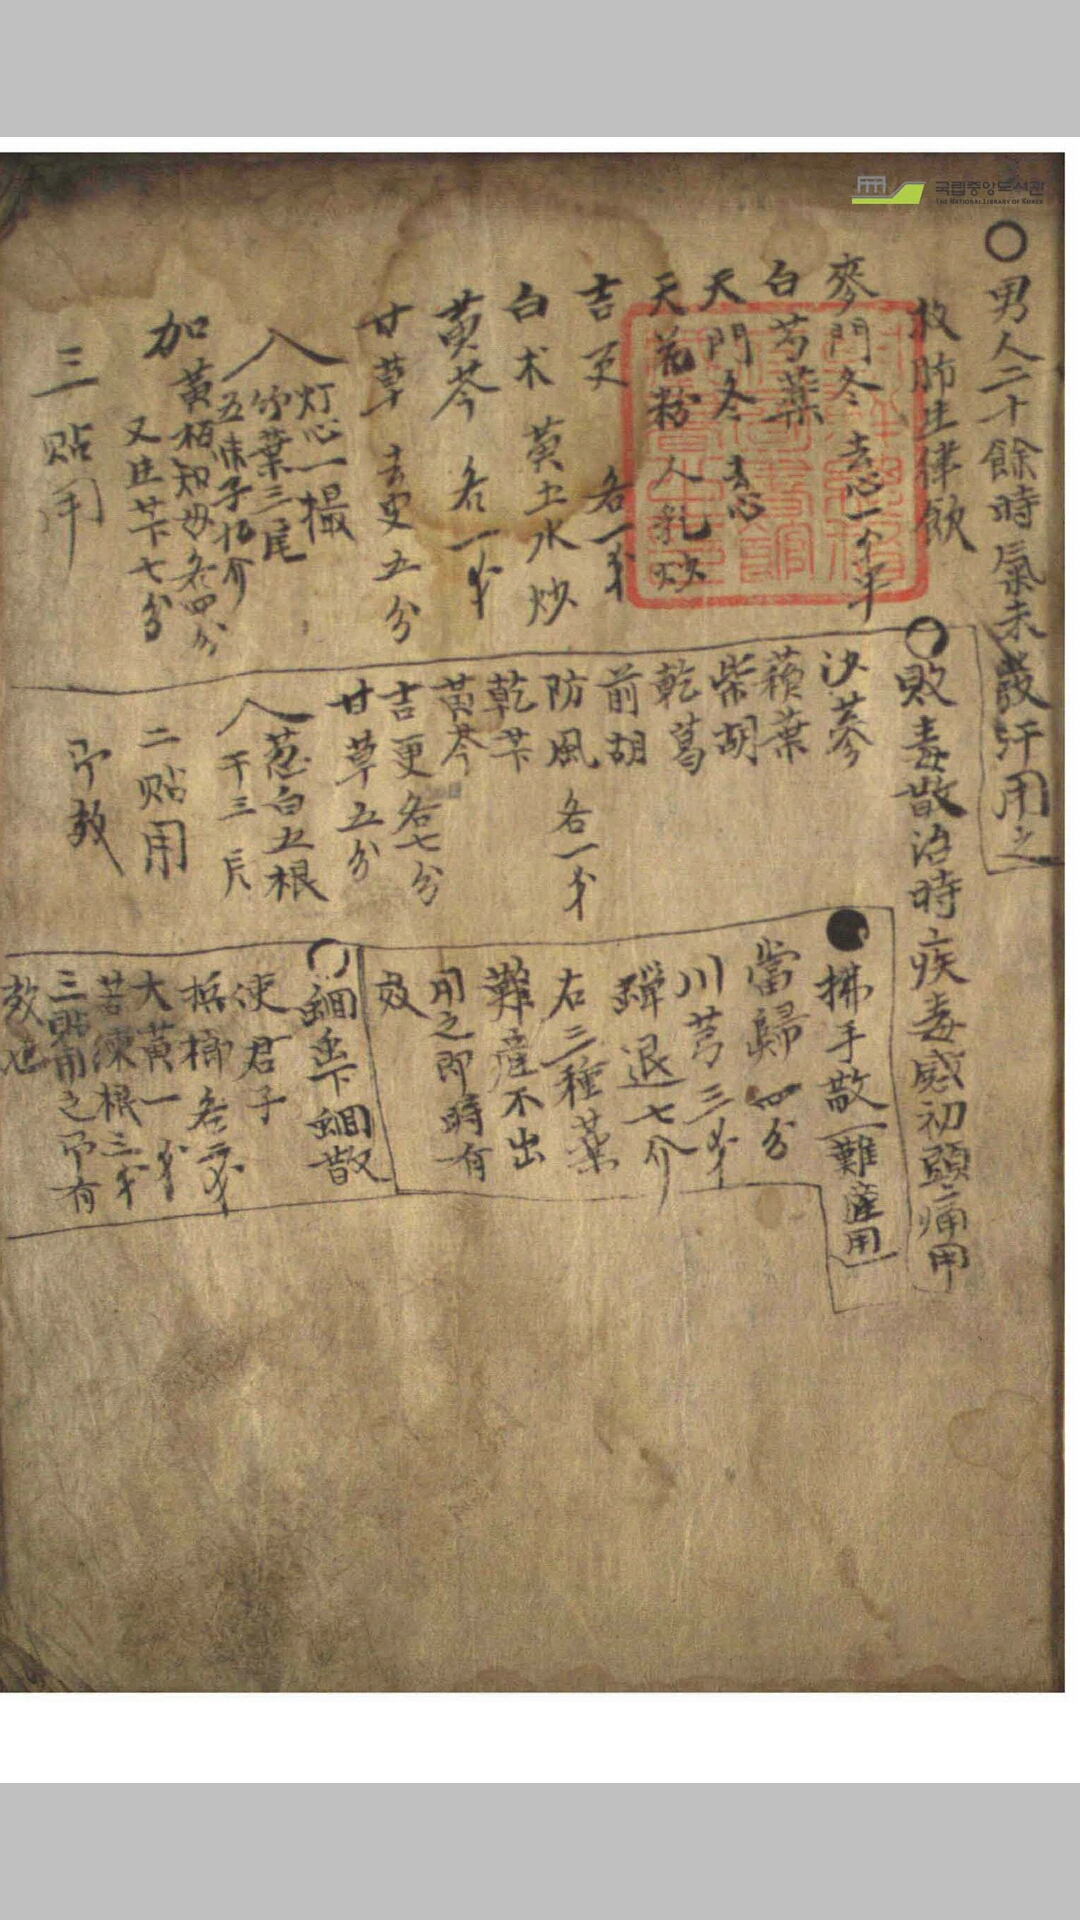 국립중앙도서관
THE NATIONAL LIBRARY OF KOREA
男人二十餘時氣未發汗用之
救肺生津飲
麥門冬 去心一戔半
白芍藥
天門冬 去心
天花粉 人乳炒
吉更 各一戔
白朮 黃土水炒
黃芩 各一戔
甘草 去皮五分
入
灯心一撮
竹葉三尾
五味子 介
加
黃栢知母各四分
又生芐七分
三貼用
敗毒散治時疾毒感初頭痛用
沙蔘
蘓葉
柴胡
乾葛
前胡
防風 各一戔
乾芐
黃芩
吉更各七分
甘草五分
入
葱白五根
干三
二貼用
卽效
拂手散難產用
當歸四分
川芎三戔
蟬退七介
右三種藥
難產不出
用之卽時有
效
蛔 下蛔散
使君子
檳榔各二戔
大黃一戔
苦練根三戔
三貼用之卽有
效也